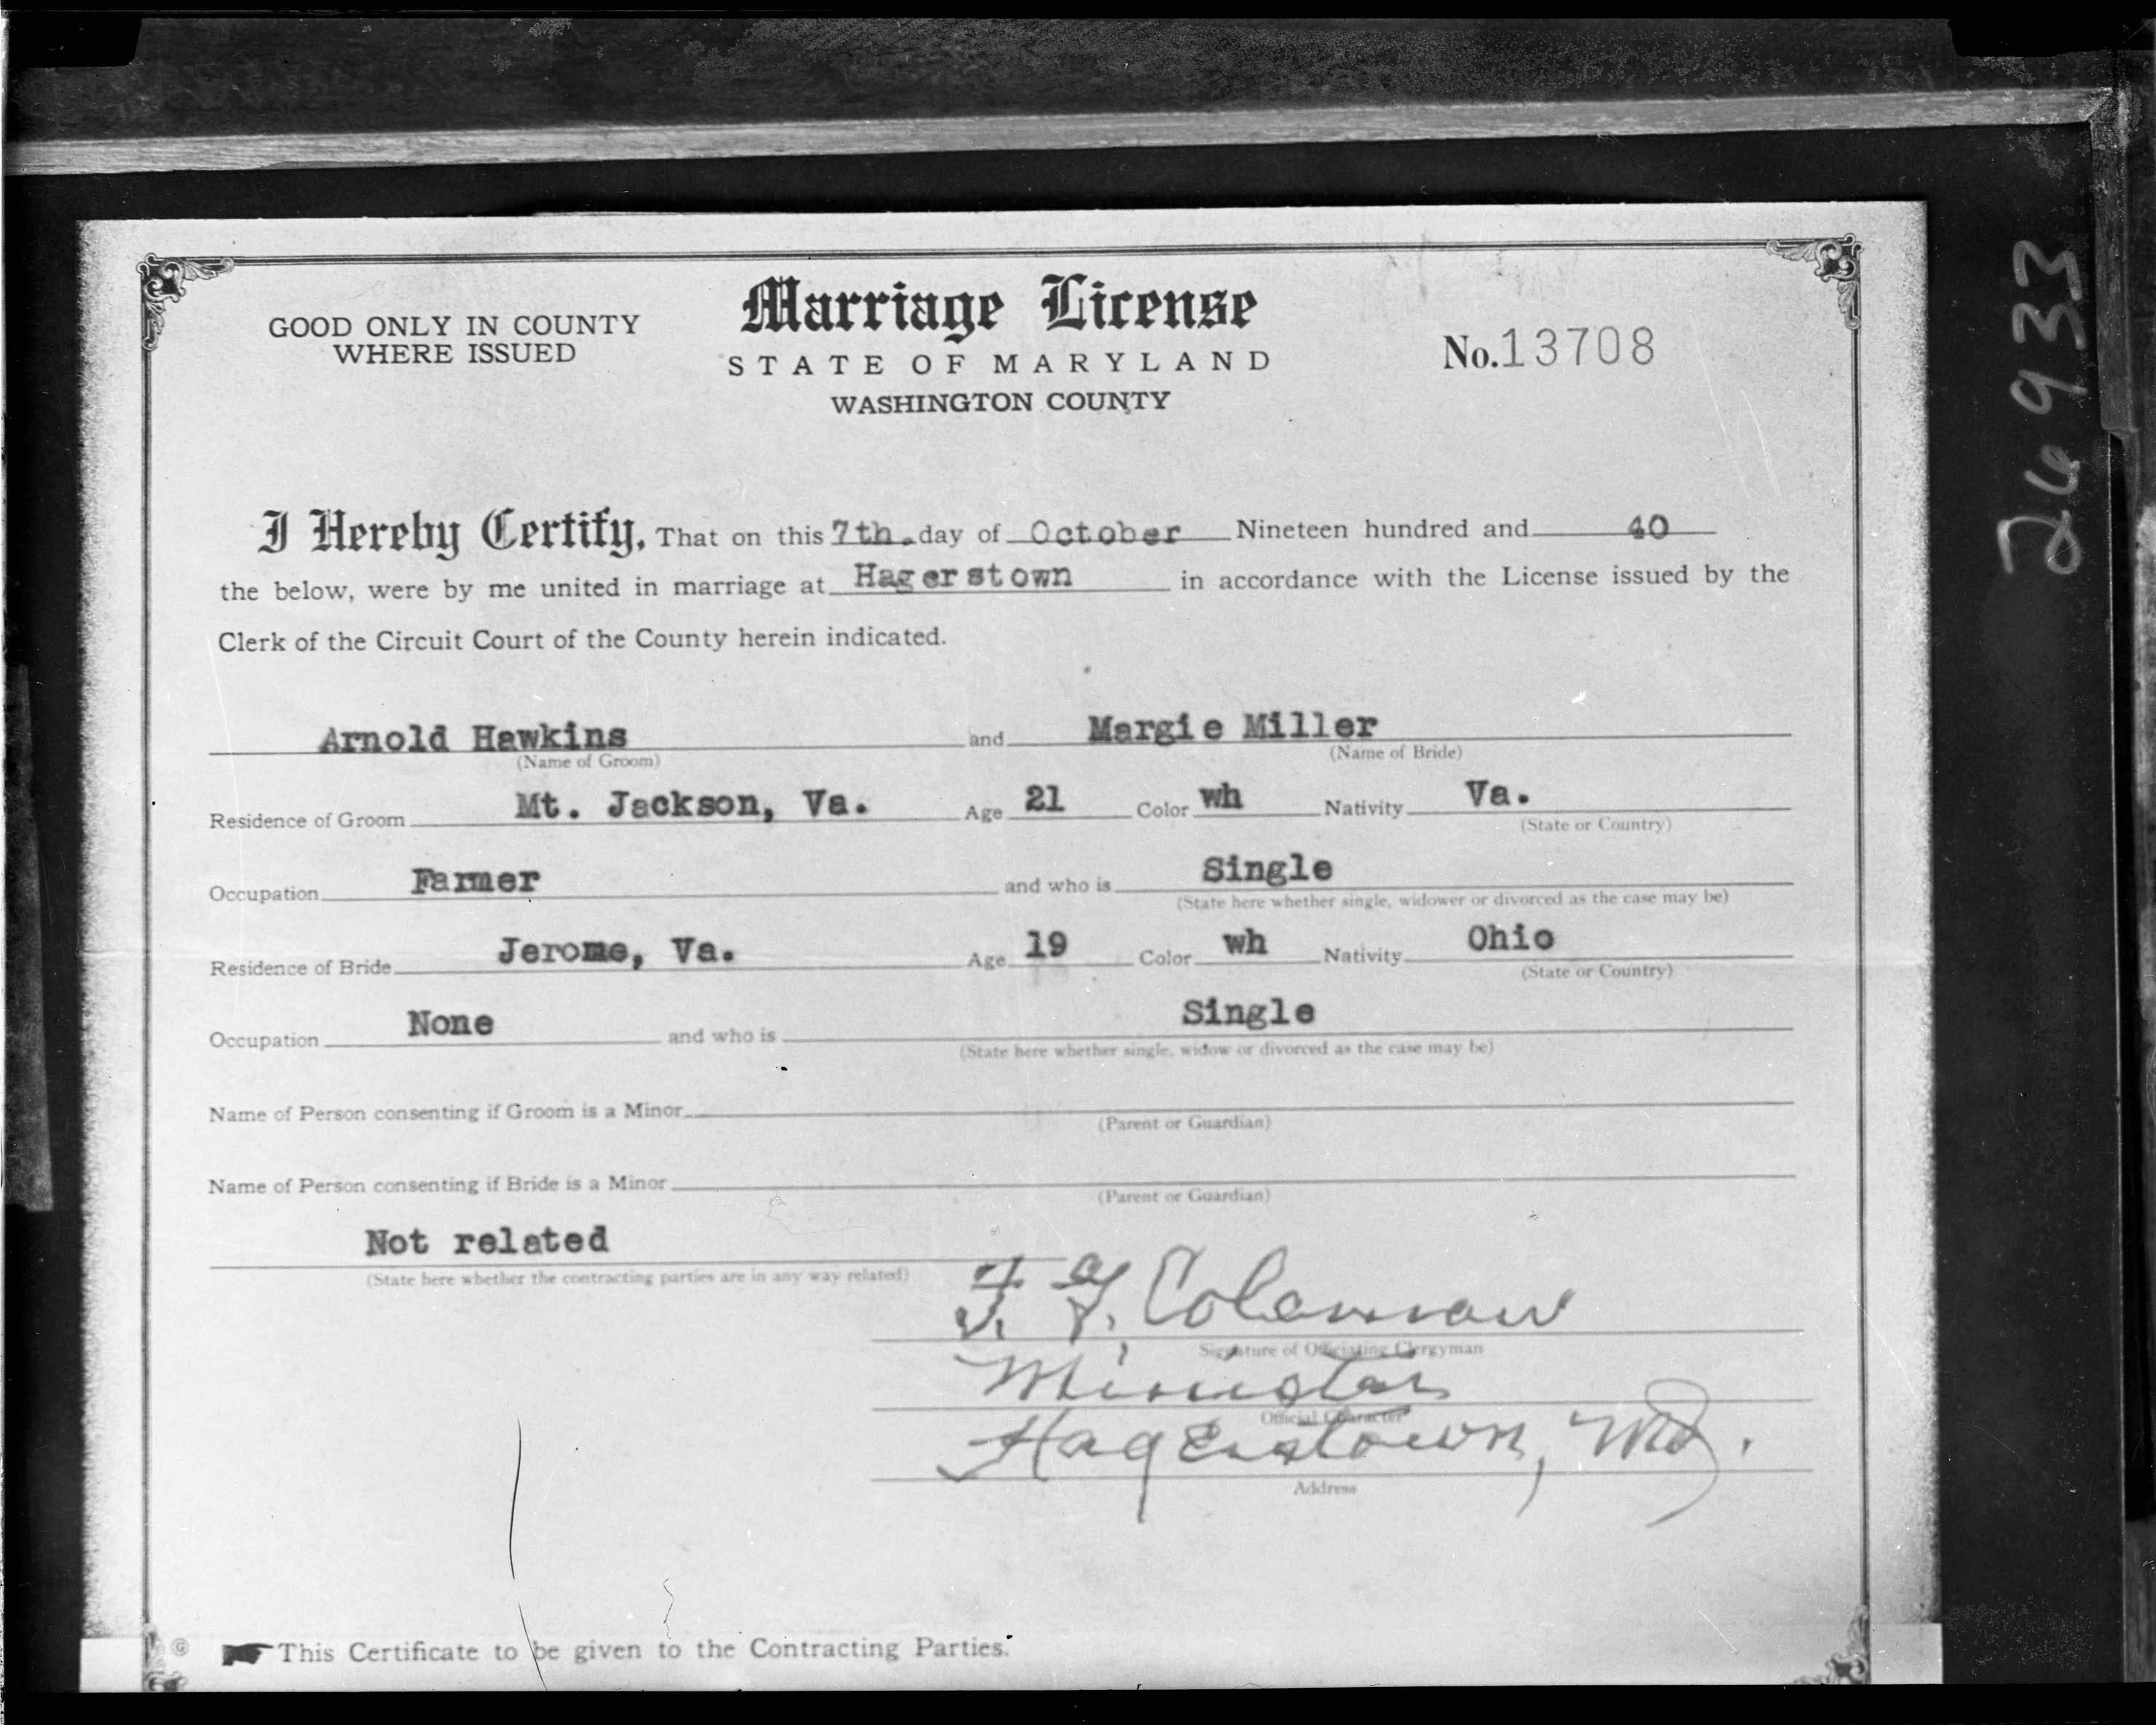 Marriage License
GOOD ONLY IN COUNTY
WHERE ISSUED
STATE OF MARYLAND
WASHINGTON COUNTY
No. 13708
26933
I Hereby Certify, That on this 7th. day of October Nineteen hundred and 40
the below, were by me united in marriage at Hagerstown in accordance with the License issued by the
Clerk of the Circuit Court of the County herein indicated.
Arnold Hawkins and Margie Miller
(Name of Groom) (Name of Bride)
Residence of Groom Mt. Jackson, Va. Age 21 Color wh Nativity Va.
(State or Country)
Occupation Farmer and who is Single
(State here whether single, widower or divorced as the case may be)
Residence of Bride Jerome, Va. Age 19 Color wh Nativity Ohio
(State or Country)
Occupation None and who is Single
(State here whether single, widow or divorced as the case may be)
Name of Person consenting if Groom is a Minor
(Parent or Guardian)
Name of Person consenting if Bride is a Minor
(Parent or Guardian)
Not related
(State here whether the contracting parties are in any way related)
Coleman
Signature of Officiating Clergyman
Minister
Official Character
Hagerstown, Md.
Address
This Certificate to be given to the Contracting Parties.